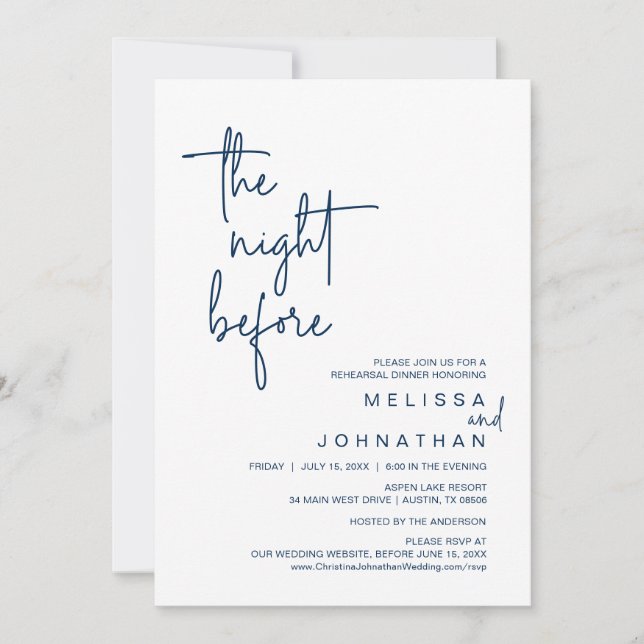 the
night
before
PLEASE JOIN US FOR A
REHEARSAL DINNER HONORING
MELISSA
and
JOHNATHAN
FRIDAY | JULY 15, 20XX | 6:00 IN THE EVENING
ASPEN LAKE RESORT
34 MAIN WEST DRIVE | AUSTIN, TX 08506
HOSTED BY THE ANDERSON
PLEASE RSVP AT
OUR WEDDING WEBSITE, BEFORE JUNE 15, 20XX
www.ChristinaJohnathanWedding.com/rsvp